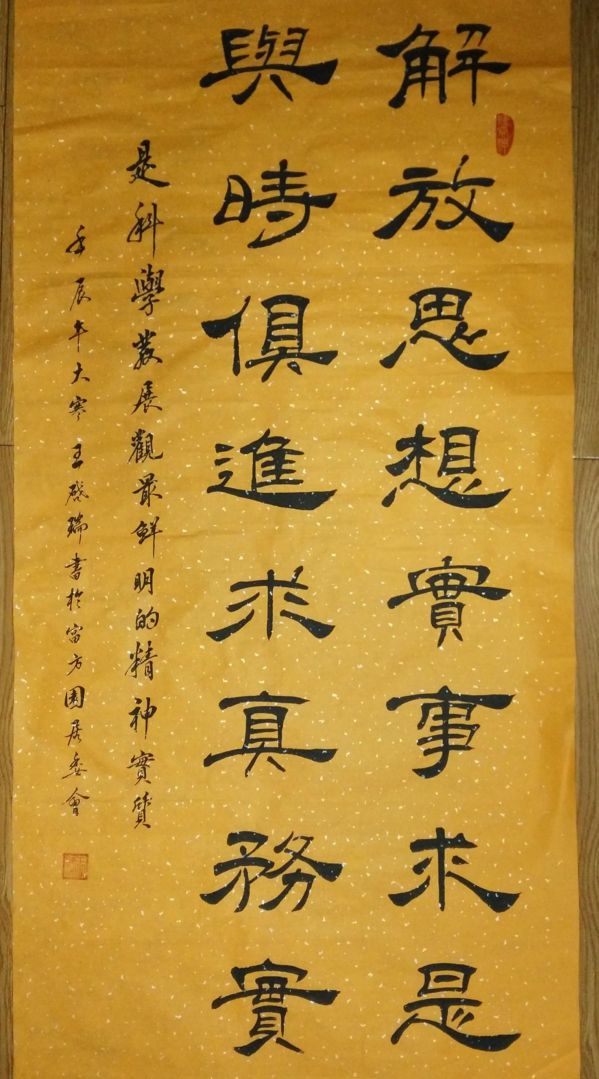 解放思想實事求是
與時俱進求真務實
是科學發展觀最鮮明的精神實質
壬辰年大寒王啟瑞書於富方園居委會